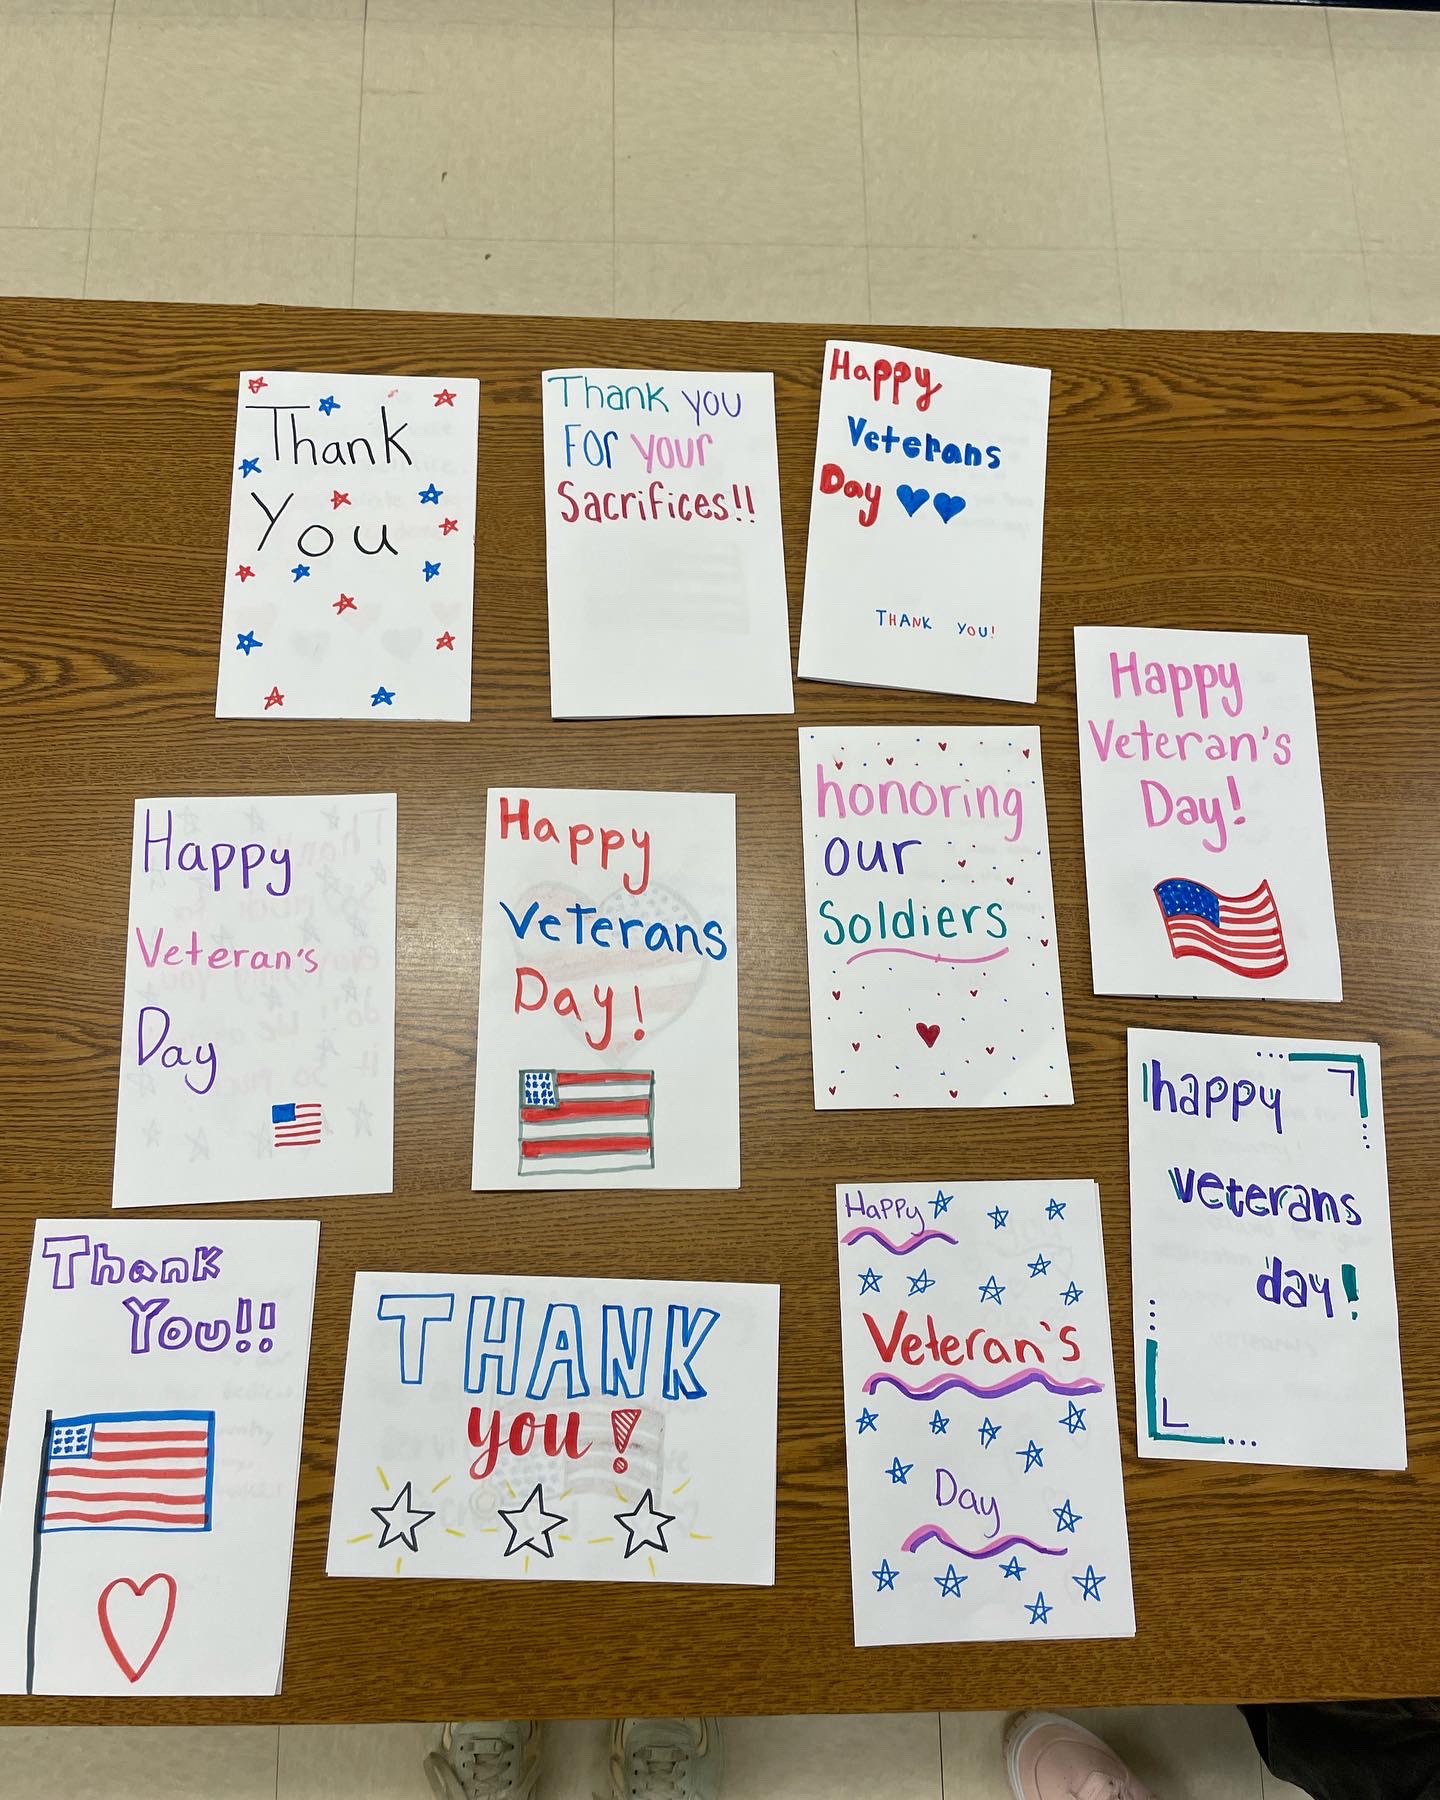 Thank
You
Thank you
For your
Sacrifices!!
Happy
Veterans
Day
THANK YOU!
Happy
Veteran's
Day!
Happy
Veteran's
Day
Happy
Veterans
Day!
honoring
our
Soldiers
happy
veterans
day!
Thank
You!!
THANK
you!
Happy
Veteran's
Day